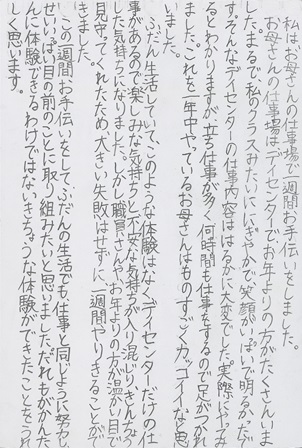 私はお母さんの仕事場で一週間お手伝いをしました。
お母さんの仕事場はデイセンターでお年よりの方がたくさんいま
した。まるで私のクラスみたいににぎやかで笑顔がいっぱいで明るかったで
す。そんなデイセンターの仕事内容ははるかに大変でした。実際にやってみ
るとわかりますが、立ち仕事が多く何時間も仕事をするので足がつかれ
ました。これを一年中やっているお母さんはものすごくカッコイイなと思
いました。
ふだん生活していて、このような体験はなくデイセンターだけの仕
事があるので楽しみな気持ちと不安な気持ちが入り混じりきんちょう
した気持ちになりました。しかし職員さんやお年よりの方が温かい目で
見守ってくれたため大きい失敗はせずに一週間やりきることがで
きました。
この一週間お手伝いをして、ふだんの生活でも仕事と同じように努力し
せいいっぱい目の前のことに取り組みたいと思いました。だれもがかんた
んに体験できるわけではないきちょうな体験ができたことをうれ
しく思います。